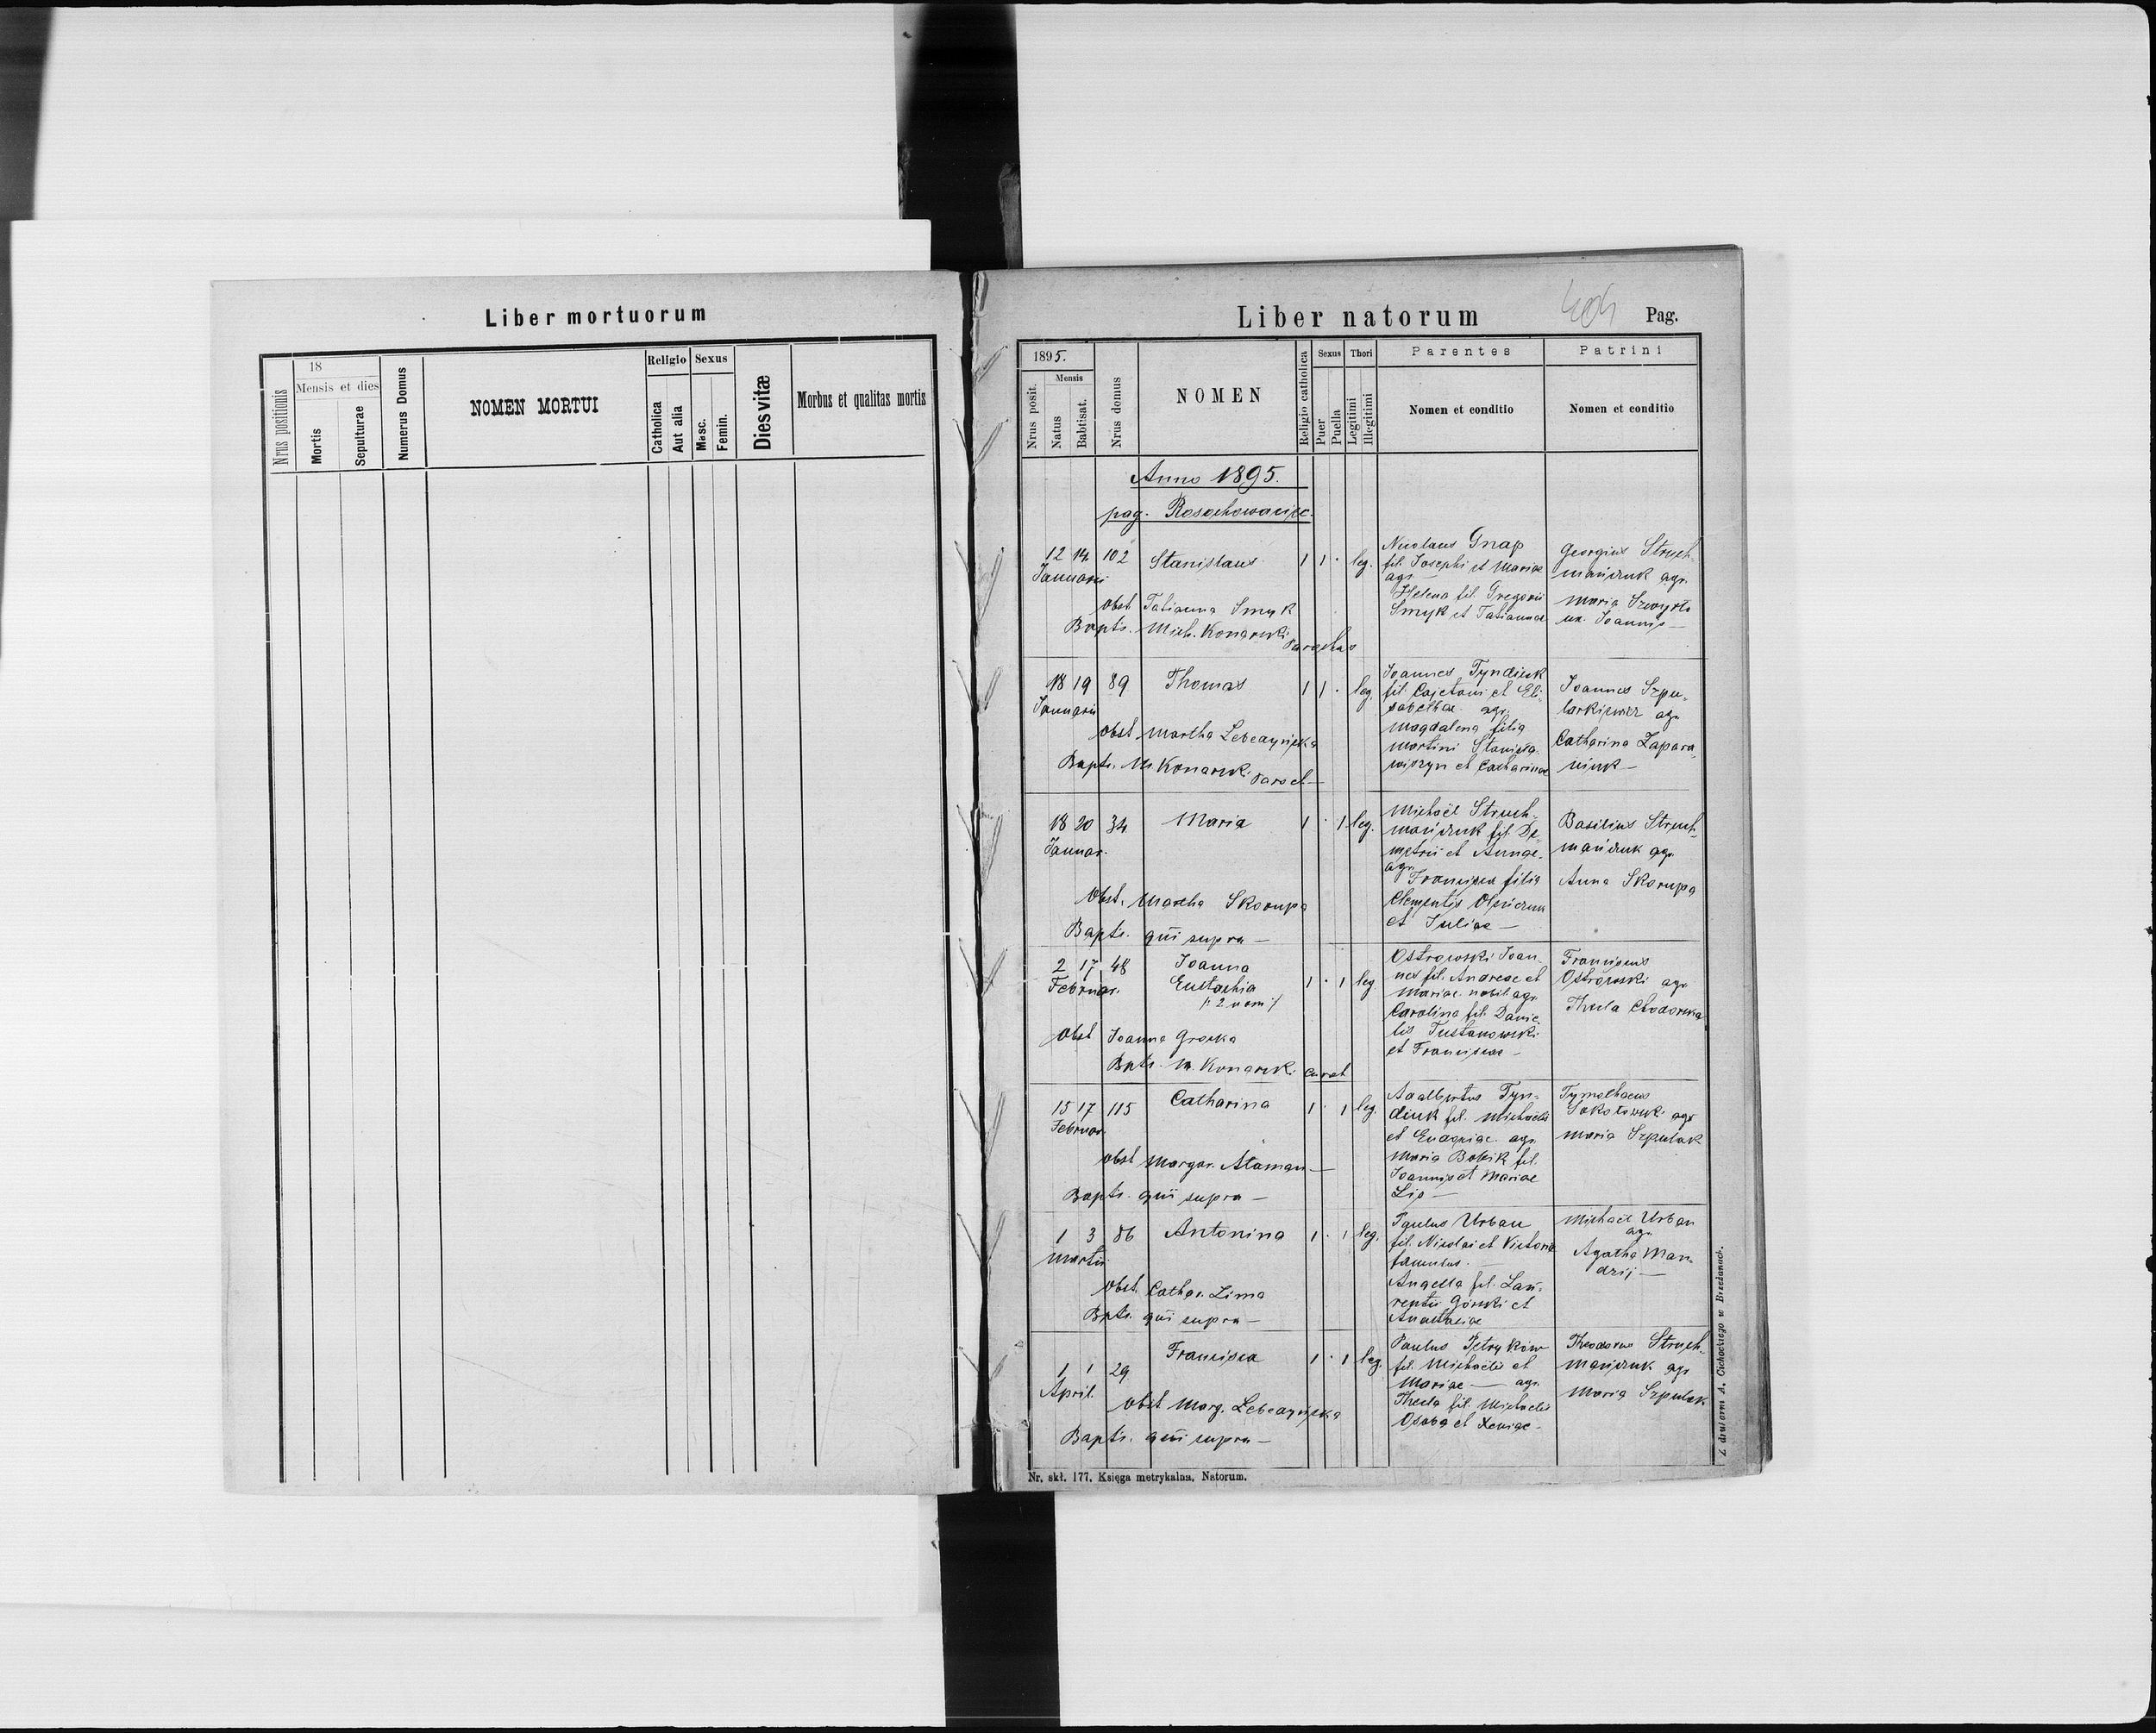 Liber mortuorum
Nrus positionis
18
Mensis et dies
Mortis
Sepulturae
Numerus Domus
NOMEN MORTUI
Religio
Catholica
Aut alia
Sexus
Masc.
Femin.
Dies vitæ
Morbus et qualitas mortis
Liber natorum
404
Pag.
1895.
Nrus posit.
Mensis
Natus
Babtisat.
Nrus domus
NOMEN
Religio catholica
Sexus
Puer
Puella
Thori
Legitimi
Illegitimi
Parentes
Nomen et conditio
Patrini
Nomen et conditio
Anno 1895.
pag. Rosochowaciec
12 14 102 Stanislaus 1 1 · leg.
Januarii
Obst Tatianna Smyk
Bapts. Mich. Konarski
Parochus
Nicolaus Gnap
fil. Josephi et Mariae
agr
Helena fil. Gregorii
Smyk et Tatiannae
Georgius Struch-
mańczuk agr.
Maria
ux. Joannis
18 19 89 Thomas 1 1 · leg.
Januarii
Obst Martha
Bapts. M Konarski Paroch
Joannes Tyndiuk
fil. Cajetani et Eli-
sabethae agr.
Magdalena filia
Martini
et Catharinae
Joannes Szpu-
larkiewicz agr
Catharina Zapara
niuk
18 20 34 Maria 1 · 1 leg.
Januar.
Obst. Martha Skorupa
Bapts. qui supra
Michaël Struch-
mańczuk fil. De-
metrii et Annae
agr
Francisca filia
Clementis
et Juliae
Basilius Struch-
mańczuk agr.
Anna Skorupa
2 17 48 Joanna
Februar. Eustachia 1 · 1 leg
/: 2 nom :/
Obst Joanna
Bpts. M. Konarski curat
Ostrowski Joan-
nes fil. Andreae et
Mariae nobil agr
Carolina fil. Danie-
lis Tustanowski
et Franciscae
Franciscus
Ostrowski agr
Thecla Chodorska
15 17 115 Catharina 1 · 1 leg.
Februar.
Obst Margar. Ataman
Bapts. qui supra
Adalbertus Tyn-
diuk fil. Michaelis
et agr.
Maria Bobik fil.
Joannis et Mariae
Lis
Tymotheus
agr
Maria Szpulak
1 3 86 Antonina 1 · 1 leg.
Martii
Obst. Cathar. Lima
Bpts. qui supra
Paulus Urban
fil. Nicolai et Victoria
famulus
Angella fil. Lau-
rentii Górski et
Anastasiae
Michaël Urban
agr.
Agatha Man-
dzij
1 1 29 Francisca 1 · 1 leg.
April.
Obst Marg.
Bapts. qui supra
Paulus Petryków
fil. Michaelis et
Mariae agr.
Thecla fil. Michaelis
Osoba et Xeniae
Theodorus Struch-
mańczuk agr
Maria Szpulak
Nr. skł. 177. Księga metrykalna, Natorum.
Z drukarni A. Cichockiego w Brzeżanach.